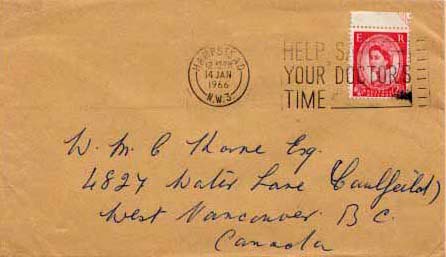 HAMPSTEAD
14 JAN
1966
N.W.3.
HELP S
YOUR DOCTOR'S
TIME
E R
W. M. C Thorne Esq.
4827 Water Lane (Caulfeild)
West Vancouver B C.
Canada